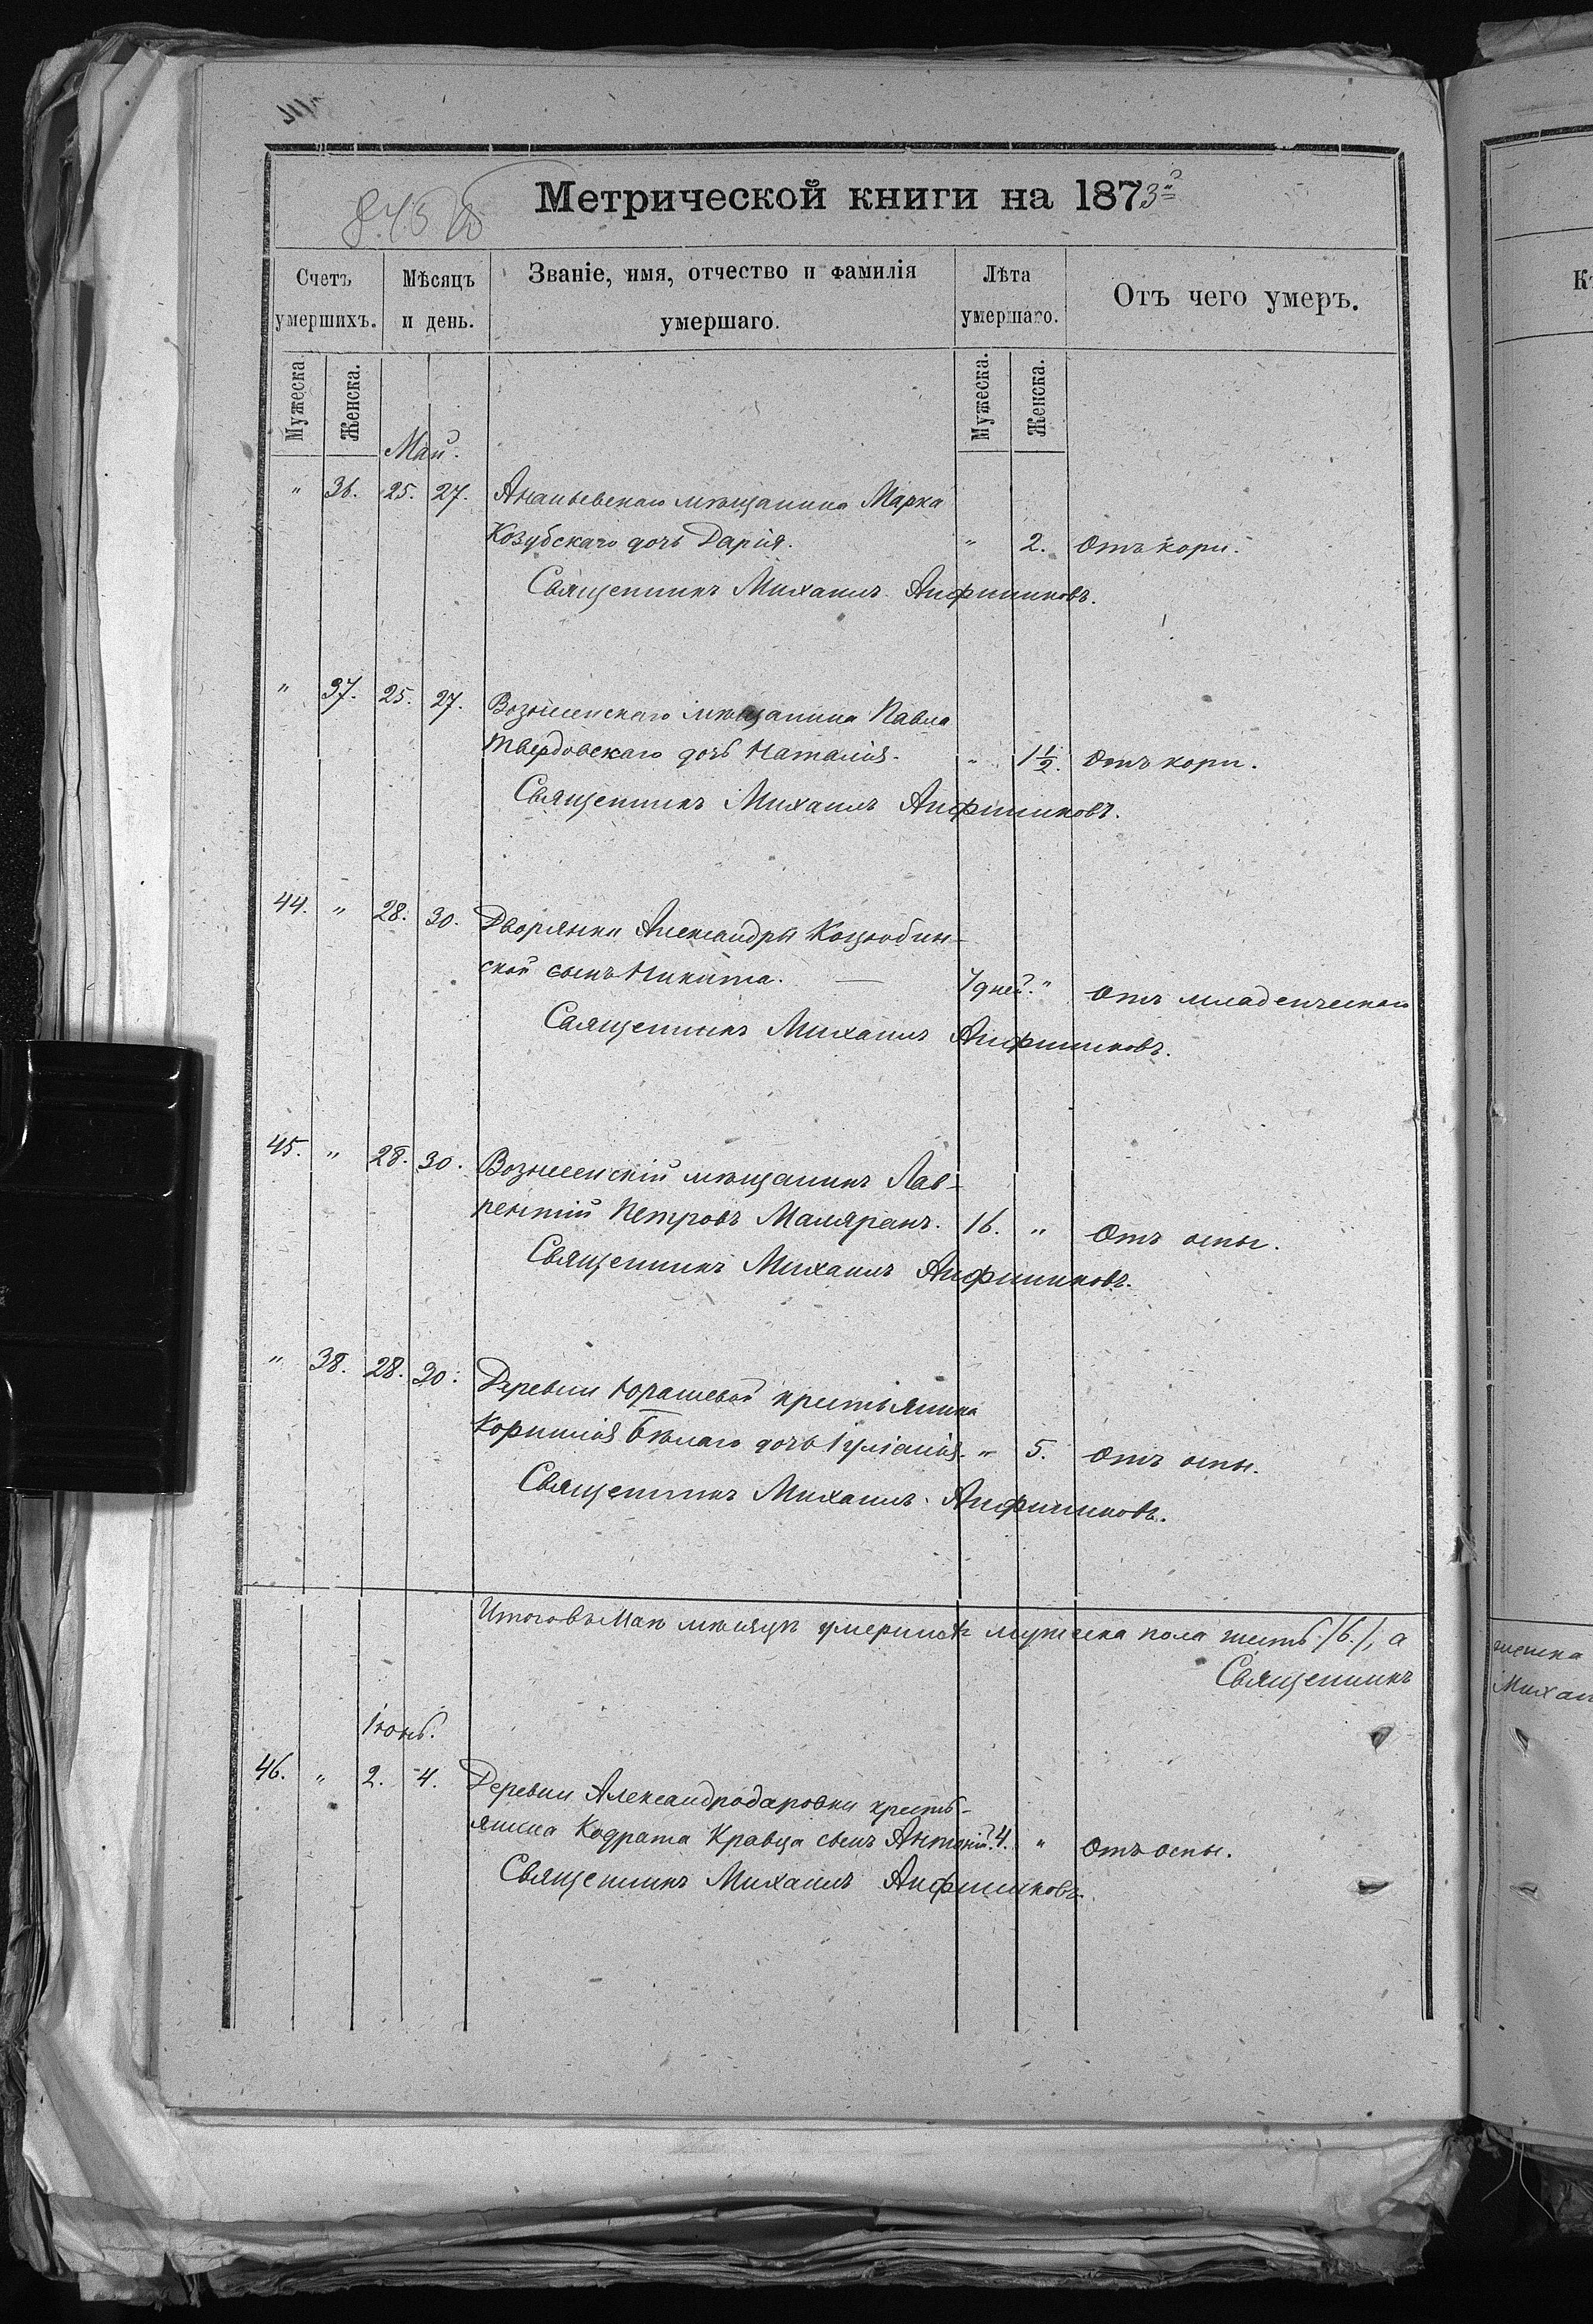 Метрической книги на 1873й
Счетъ умершихъ.
Мѣсяцъ и день.
Званіе, имя, отчество и фамилія умершаго.
Лѣта умершаго.
Отъ чего умеръ.
Мужеска.
Женска.
Мужеска.
Женска.
Май.
" 36. 25. 27. Ананьевскаго мѣщанина Марка
Козубскаго дочь Дарія. " 2. Отъ кори.
Священникъ Михаилъ Анфиников.
" 37. 25. 27. Вознесенскаго мѣщанина Павла
Твердовскаго дочь Наталія. " 1½. Отъ кори.
Священникъ Михаилъ Анфиниковъ.
44. " 28. 30. Дворянки Александры Коцюбин-
ской сынъ Никита. 7 дней. " Отъ младенческаго
Священникъ Михаилъ Анфиниковъ.
45. " 28. 30. Вознесенскій мѣщанинъ Лав-
рентій Петровъ Маляранъ. 16. " Отъ оспы.
Священникъ Михаилъ Анфиниковъ.
" 38. 28. 30. Деревни Юрашевой крестьянина
Корнилія Бѣлаго дочь Іуліанія. " 5. Отъ оспы.
Священникъ Михаилъ Анфиниковъ.
Итого въ Маѣ мѣсяцѣ умершихъ мужеска пола шесть /6./, а
Священникъ
Іюнь.
46. " 2. 4. Деревни Александродаровки кресть-
янина Кодрата Кравца сынъ Антоній. 4. " Отъ оспы.
Священникъ Михаилъ Анфиниковъ.